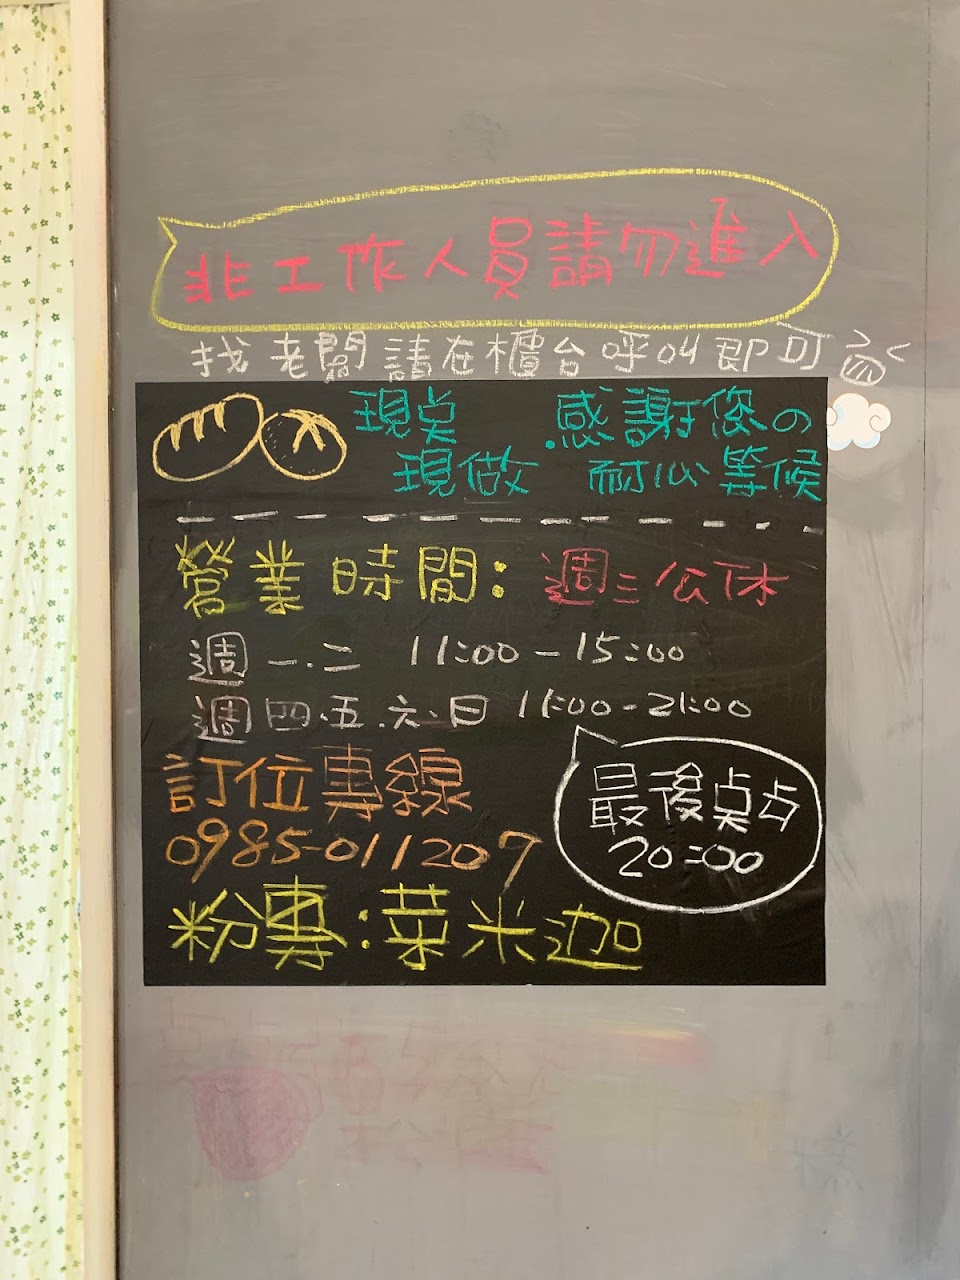 非工作人員請勿進入
找老闆請在櫃台呼叫即可
現点 感謝您の
現做 耐心等候
營業時間: 週三公休
週一.二 11:00-15:00
週四.五.六.日 11:00-21:00
訂位專線
0985-011207
最後点占
20:00
粉專:菜米迦